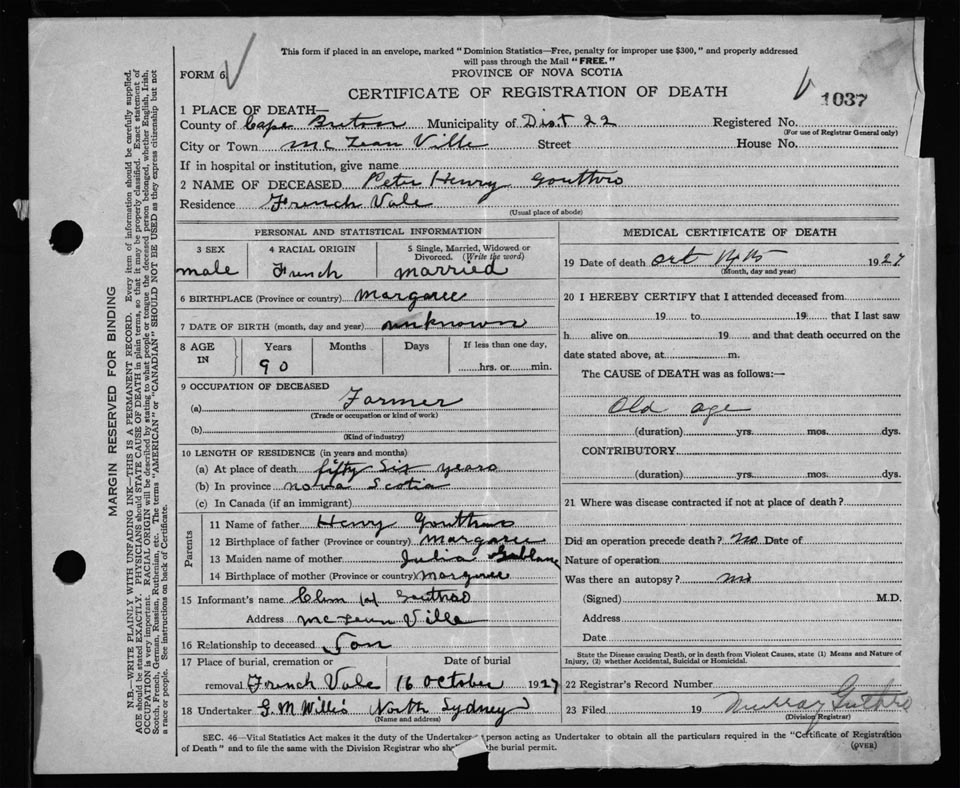 This form if placed in an envelope, marked "Dominion Statistics—Free, penalty for improper use $300," and properly addressed
will pass through the Mail "FREE."
FORM 6.
PROVINCE OF NOVA SCOTIA
CERTIFICATE OF REGISTRATION OF DEATH
1037
1 PLACE OF DEATH—
County of Cape Breton Municipality of Dist 22 Registered No.
(For use of Registrar General only)
City or Town Mc Lean Ville Street House No.
If in hospital or institution, give name
2 NAME OF DECEASED Peter Henry Gouthro
Residence French Vale
(Usual place of abode)
PERSONAL AND STATISTICAL INFORMATION
3 SEX 4 RACIAL ORIGIN 5 Single, Married, Widowed or Divorced. (Write the word)
male French married
6 BIRTHPLACE (Province or country) Margaree
7 DATE OF BIRTH (month, day and year) unknown
8 AGE IN Years Months Days If less than one day,
90 hrs. or min.
9 OCCUPATION OF DECEASED
(a) Farmer
(Trade or occupation or kind of work)
(b)
(Kind of industry)
10 LENGTH OF RESIDENCE (in years and months)
(a) At place of death fifty Six years
(b) In province nova Scotia
(c) In Canada (if an immigrant)
Parents
11 Name of father Henry Gouthro
12 Birthplace of father (Province or country) Margaree
13 Maiden name of mother Julia
14 Birthplace of mother (Province or country) Margaree
15 Informant's name Gouthro
Address McLean Ville
16 Relationship to deceased Son
17 Place of burial, cremation or Date of burial
removal French Vale 16 October 1927
18 Undertaker G. M Willis North Sydney
(Name and address)
MEDICAL CERTIFICATE OF DEATH
19 Date of death Oct 1927
(Month, day and year)
20 I HEREBY CERTIFY that I attended deceased from
19 to 19 that I last saw
h alive on 19 and that death occurred on the
date stated above, at m.
The CAUSE of DEATH was as follows:—
Old age
(duration) yrs. mos. dys.
CONTRIBUTORY
(duration) yrs. mos. dys.
21 Where was disease contracted if not at place of death?
Did an operation precede death? no Date of
Nature of operation
Was there an autopsy? no
(Signed) M.D.
Address
Date
State the Disease causing Death, or in death from Violent Causes, state (1) Means and Nature of
Injury, (2) whether Accidental, Suicidal or Homicidal.
22 Registrar's Record Number
23 Filed 19 Murray Guthro
(Division Registrar)
SEC. 46—Vital Statistics Act makes it the duty of the Undertaker person acting as Undertaker to obtain all the particulars required in the "Certificate of Registration
of Death" and to file the same with the Division Registrar who the burial permit.
(OVER)
MARGIN RESERVED FOR BINDING
N.B.—WRITE PLAINLY WITH UNFADING INK—THIS IS A PERMANENT RECORD. Every item of information should be carefully supplied.
AGE should be stated EXACTLY. PHYSICIANS should STATE CAUSE OF DEATH in plain terms, so that it may be properly classified. Exact statement of
OCCUPATION is very important. RACIAL ORIGIN will be described by stating to what people or tongue the deceased person belonged, whether English, Irish,
Scotch, French, German, Russian, Ruthenian, etc. The terms "AMERICAN" or "CANADIAN" SHOULD NOT BE USED as they express citizenship but not
a race or people. See instructions on back of Certificate.